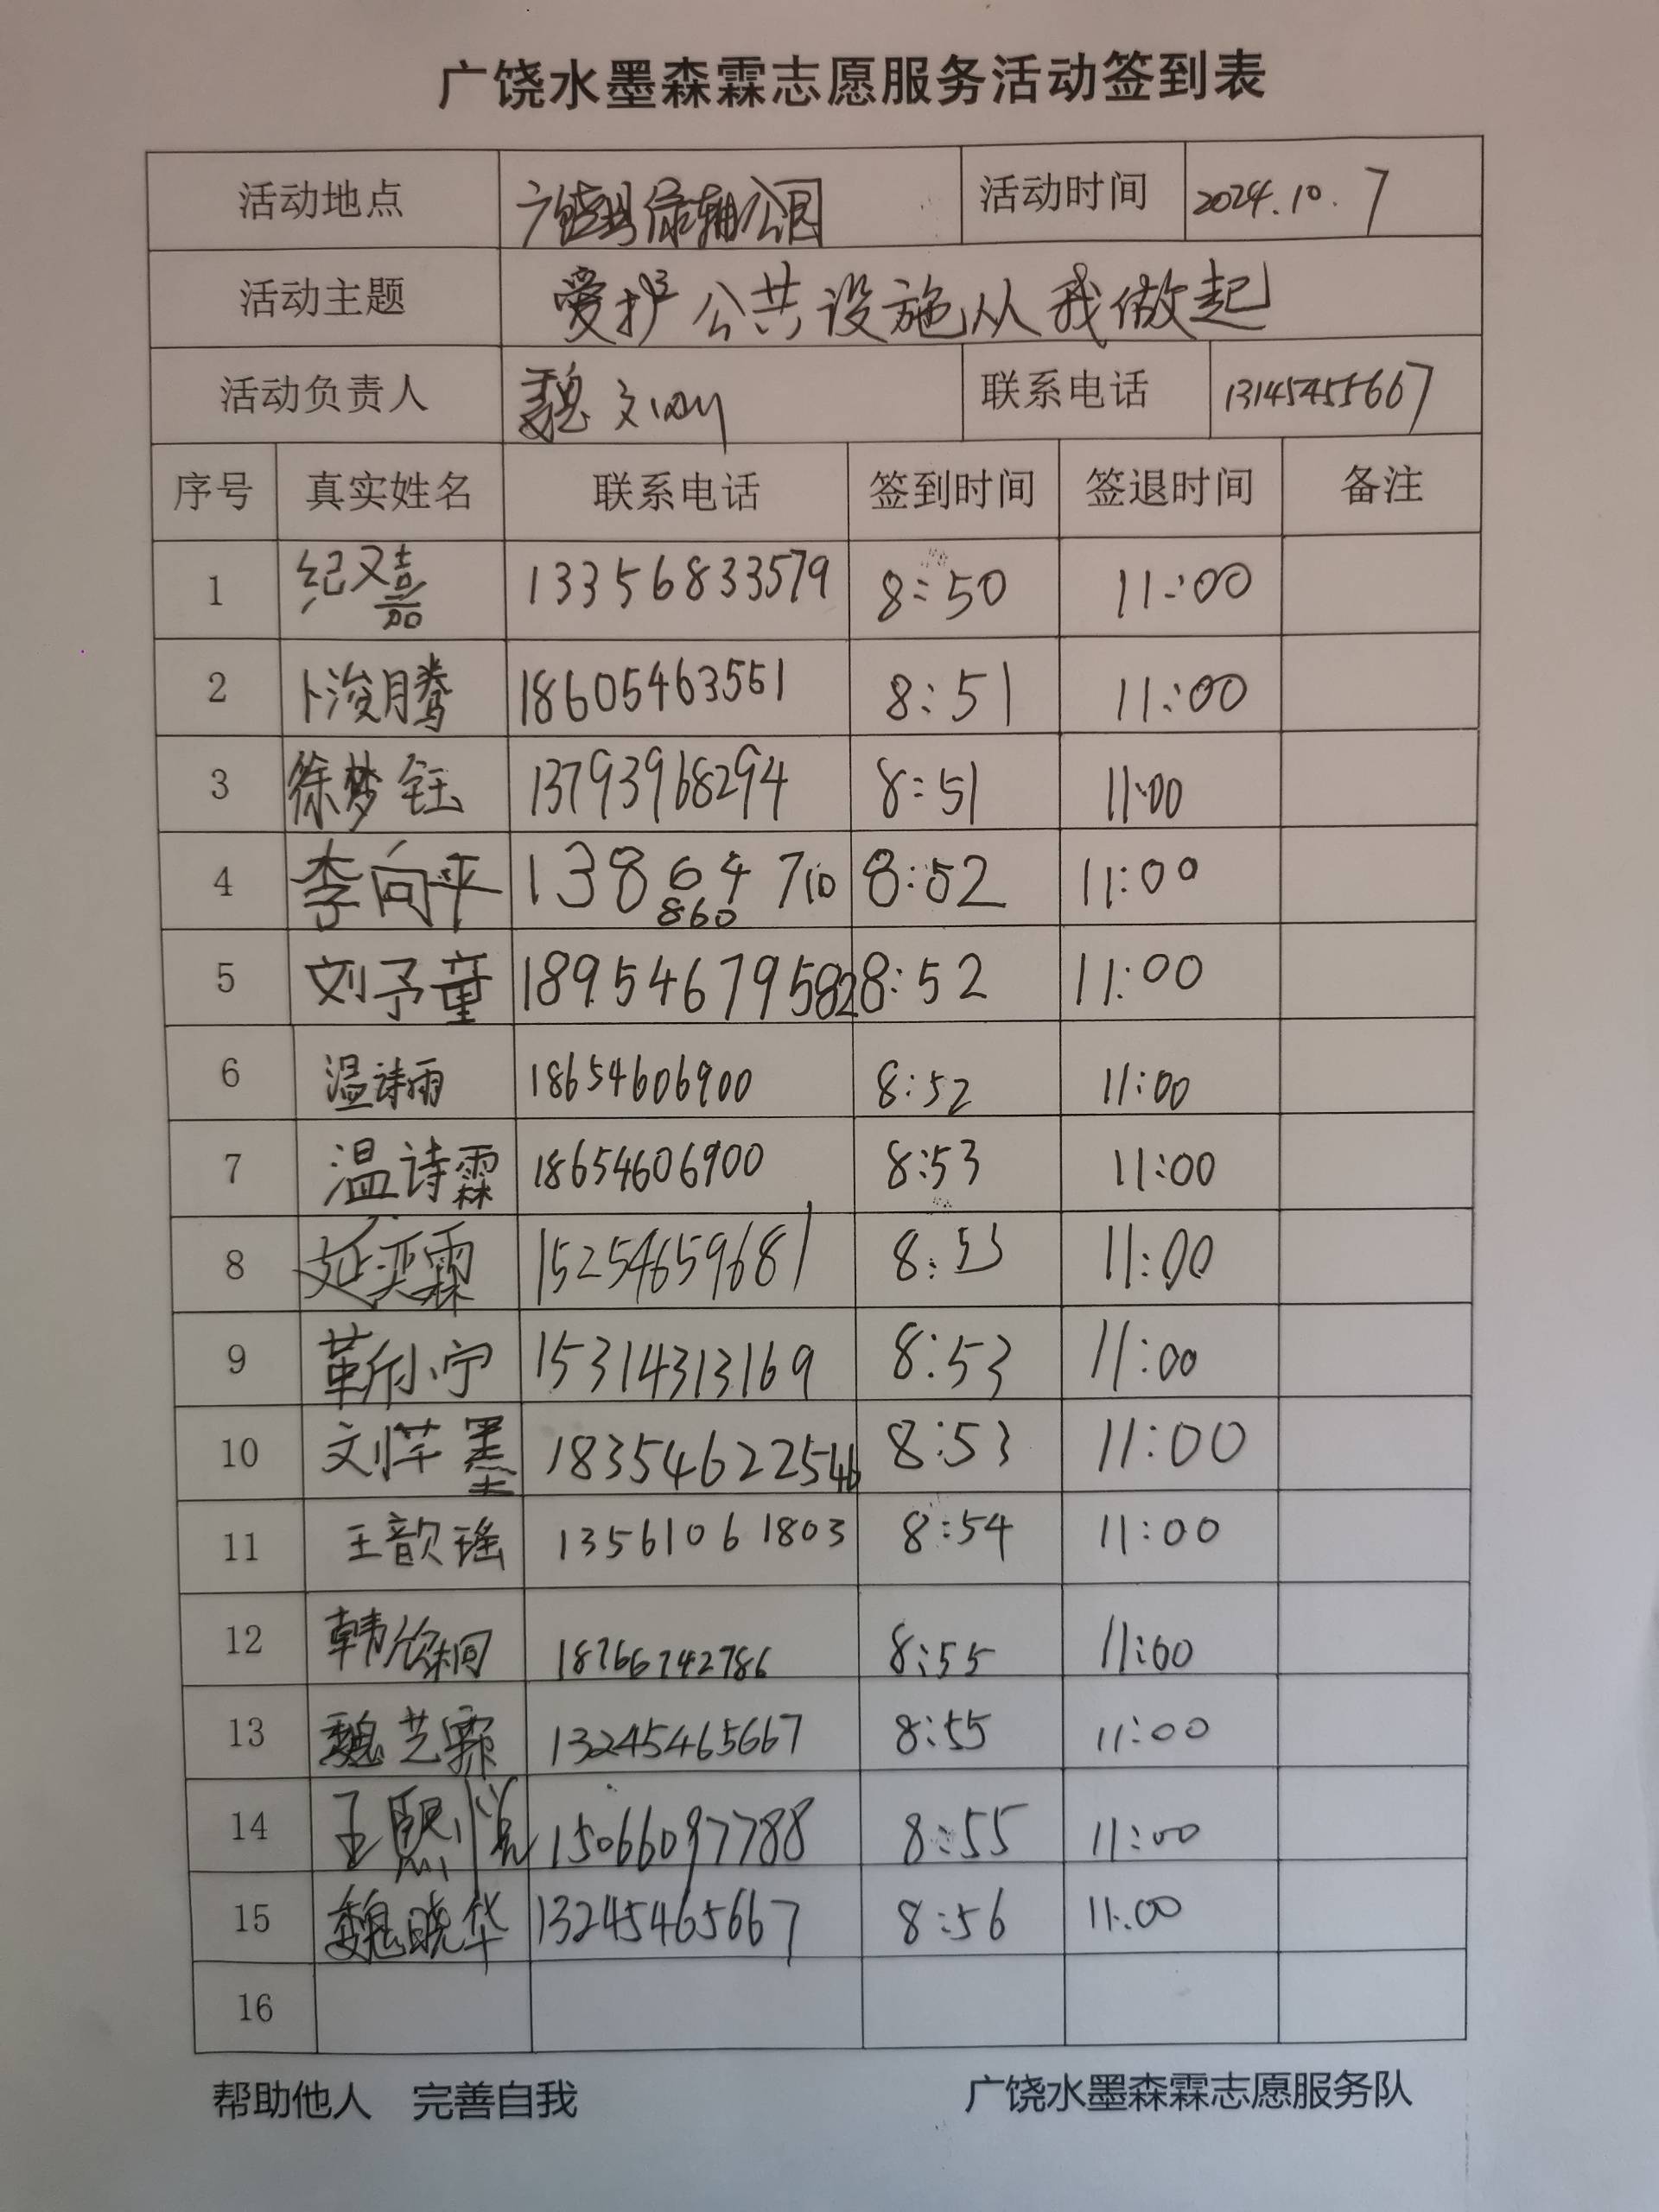 广饶水墨森霖志愿服务活动签到表
活动地点 广饶县绿轴公园 活动时间 2024.10.7
活动主题 爱护公共设施从我做起
活动负责人 魏文刚 联系电话 13145455667
序号 真实姓名 联系电话 签到时间 签退时间 备注
1 纪又嘉 13356833579 8:50 11:00
2 卜浚腾 18605463551 8:51 11:00
3 徐梦钰 13793968294 8:51 11:00
4 李向平 13864710860 8:52 11:00
5 刘予童 18954679582 8:52 11:00
6 温诗雨 18654606900 8:52 11:00
7 温诗霖 18654606900 8:53 11:00
8 延奕霖 15254659681 8:53 11:00
9 靳小宁 15314313169 8:53 11:00
10 刘芊墨 18354622546 8:53 11:00
11 王歆瑶 13561061803 8:54 11:00
12 韩欣桐 18766742786 8:55 11:00
13 魏艺霖 13245465667 8:55 11:00
14 王熙悦 15066097788 8:55 11:00
15 魏晓华 13245465667 8:56 11:00
16
帮助他人 完善自我 广饶水墨森霖志愿服务队